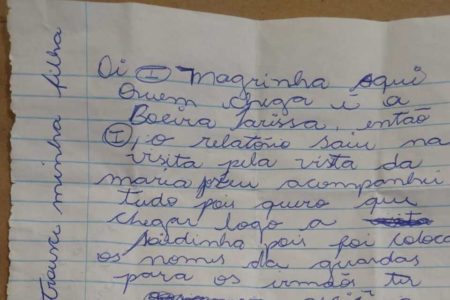 Oi I Magrinha aqui
quem chega é a
Boeira Larissa, então
I, o relatório saiu na
visita pela vista da
maria eu acompanhei
tudo pois quero que
chegar logo a
saidinha pois foi coloca
os nomes da guardas
para os irmãos ter
minha filha